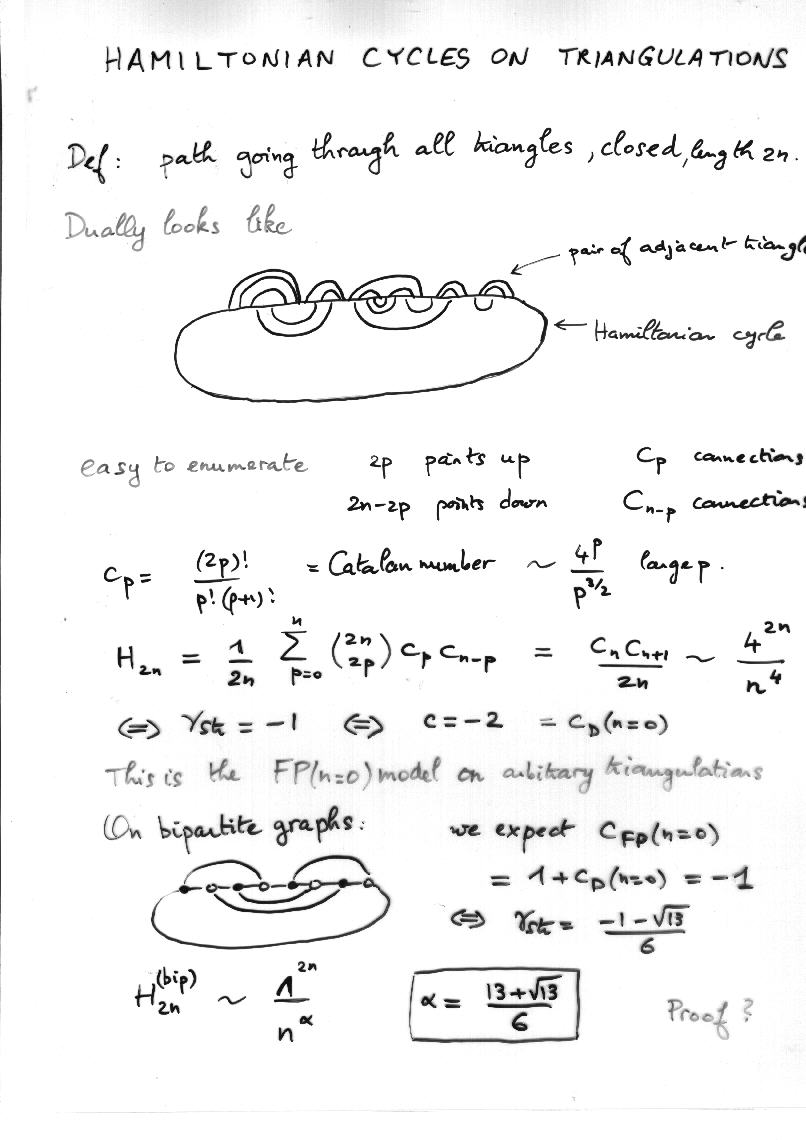 HAMILTONIAN CYCLES ON TRIANGULATIONS
Def: path going through all triangles, closed, length 2n.
Dually looks like
pair of adjacent triangle
Hamiltonian cycle
easy to enumerate 2p points up C_p connections
2n-2p points down C_{n-p} connections
C_p = (2p)! / p!(p+1)! = Catalan number ~ 4^p / p^{3/2} large p.
H_{2n} = 1/2n Σ_{p=0}^{n} (2n 2p) C_p C_{n-p} = C_n C_{n+1} / 2n ~ 4^{2n} / n^4
⇔ γ_str = -1 ⇔ c = -2 = C_D(n=0)
This is the FP(n=0) model on arbitrary triangulations
On bipartite graphs: we expect C_{FP}(n=0)
= 1 + C_D(n=0) = -1
⇔ γ_str = (-1-√13) / 6
H_{2n}^{(bip)} ~ Λ^{2n} / n^α α = (13+√13) / 6 Proof?